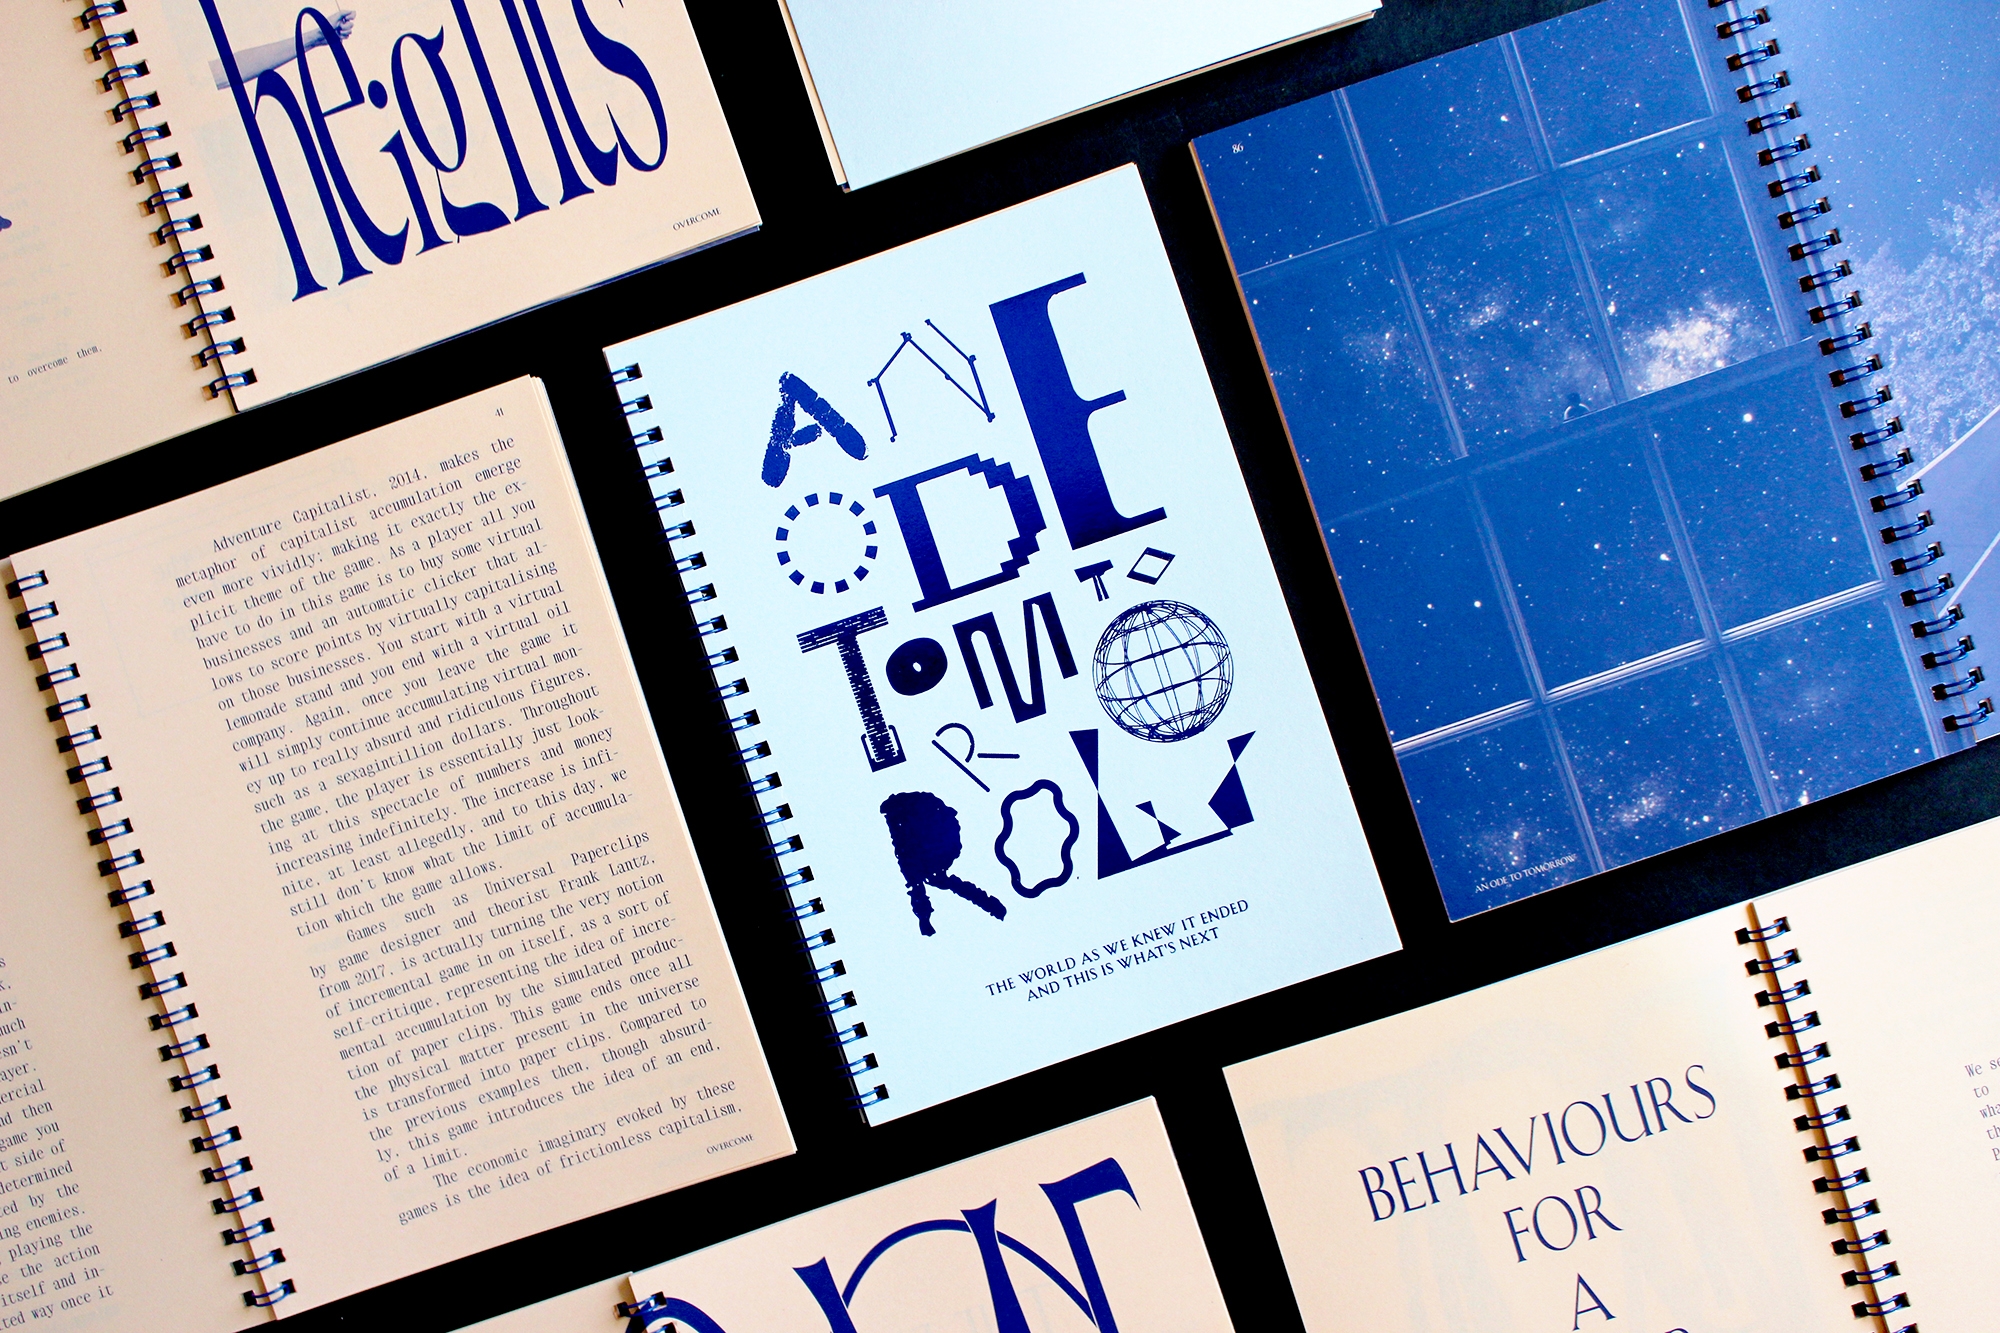 heights
OVERCOME
to overcome them.
41
Adventure Capitalist, 2014, makes the
metaphor of capitalist accumulation emerge
even more vividly; making it exactly the ex-
plicit theme of the game. As a player all you
have to do in this game is to buy some virtual
businesses and an automatic clicker that al-
lows to score points by virtually capitalising
on those businesses. You start with a virtual
lemonade stand and you end with a virtual oil
company. Again, once you leave the game it
will simply continue accumulating virtual mon-
ey up to really absurd and ridiculous figures,
such as a sexagintillion dollars. Throughout
the game, the player is essentially just look-
ing at this spectacle of numbers and money
increasing indefinitely. The increase is infi-
nite, at least allegedly, and to this day, we
still don't know what the limit of accumula-
tion which the game allows.
Games such as Universal Paperclips
by game designer and theorist Frank Lantz,
from 2017, is actually turning the very notion
of incremental game in on itself, as a sort of
self-critique, representing the idea of incre-
mental accumulation by the simulated produc-
tion of paper clips. This game ends once all
the physical matter present in the universe
is transformed into paper clips. Compared to
the previous examples then, though absurd-
ly, this game introduces the idea of an end,
of a limit.
The economic imaginary evoked by these
games is the idea of frictionless capitalism,
OVERCOME
esn't
ayer.
ercial
nd then
game you
t side of
determined
ted by the
ing enemies.
playing the
se the action
itself and in-
ted way once it
AN E
OD
TO
TOMO
R
ROW
THE WORLD AS WE KNEW IT ENDED
AND THIS IS WHAT'S NEXT
86
AN ODE TO TOMORROW
BEHAVIOURS
FOR
A
We se
to
wha
th